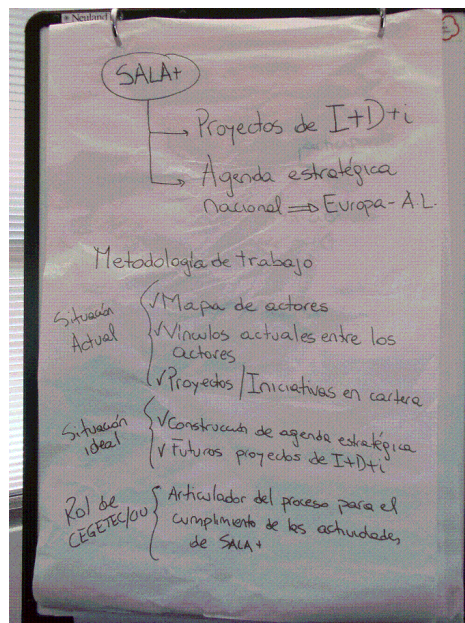 Neuland
SALA+
Proyectos de I+D+i
Agenda estratégica
nacional ⇒ Europa-A.L.
Metodología de trabajo
Situación
Actual
✓ Mapa de actores
✓ Vínculos actuales entre los
actores
✓ Proyectos / Iniciativas en cartera
Situación
ideal
✓ Construcción de agenda estratégica
✓ Futuros proyectos de I+D+i
Rol de
CEGETEC/OU
Articulador del proceso para el
cumplimiento de las actividades
de SALA+